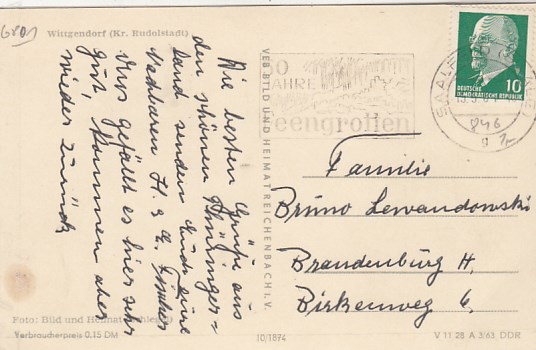 Gron
Wittgendorf (Kr. Rudolstadt)
Die besten Grüße aus
den schönen Thüringer-
land senden Euch Eure
Nachbaren H. & E.
Uns gefällt es hier sehr
gut kommen aber
wieder zurück
VEB BILD UND HEIMAT REICHENBACH I. V.
JAHRE
eengrotten
SAALF
846
DEUTSCHE
DEMOKRATISCHE REPUBLIK
10
Familie
Bruno Lewandowski
Brandenburg H.
Birkenweg 6.
Foto: Bild und Heimat
Verbraucherpreis 0.15 DM
10/1874
V 11 28 A 3/63 DDR